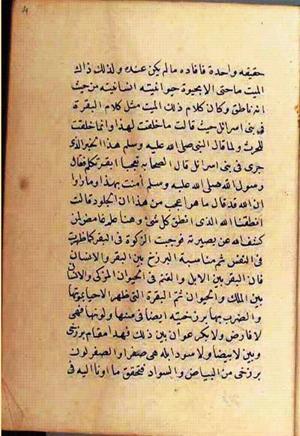 حقيقه واحدة فافاده مالم يكن عنده ولذلك ذاك
الميت ماحتى الا بحيوة حيوانيته انسانيته من حيث
انه ناطق وكان كلام ذلك الميت مثل كلام البقرة
فى بنى اسرائل حيث قالت ماخلقت لهذا وانما خلقت
للحرث ولما قال النبى صلى الله عليه وسلم هذا الخبر الذى
جرى فى بنى اسرائل قال الصحابه تعجبا ابقرة تكلم فقال
رسول الله صلى الله عليه وسلم آمنت بهذا وما راوا
ان الله قد قال ما هو اعجب من هذا ان الجلود قالت
انطقنا الله الذى انطق كل شئ وهنا علم غامض لمن
كشف الله عن بصيرته فوجبت الزكوة فى البقر كما ظهرت
فى النفس ثم مناسبة البرزخ بين البقر والانسان
فان البقر بين الابل والغنم فى الحيوان المزكى والانسان
بين الملك والحيوان ثم البقرة التى ظهر الاحيا بموتها
والضرب بها برزخية ايضا فى سنها ولونها فهى
لا فارض ولا بكر عوان بين ذلك فهذا مقام برزخى
وبين لا بيضا ولا سودا بل هى صفرا والصفر لون
برزخى بين البياض والسواد فتحقق ما اومانا اليه فى